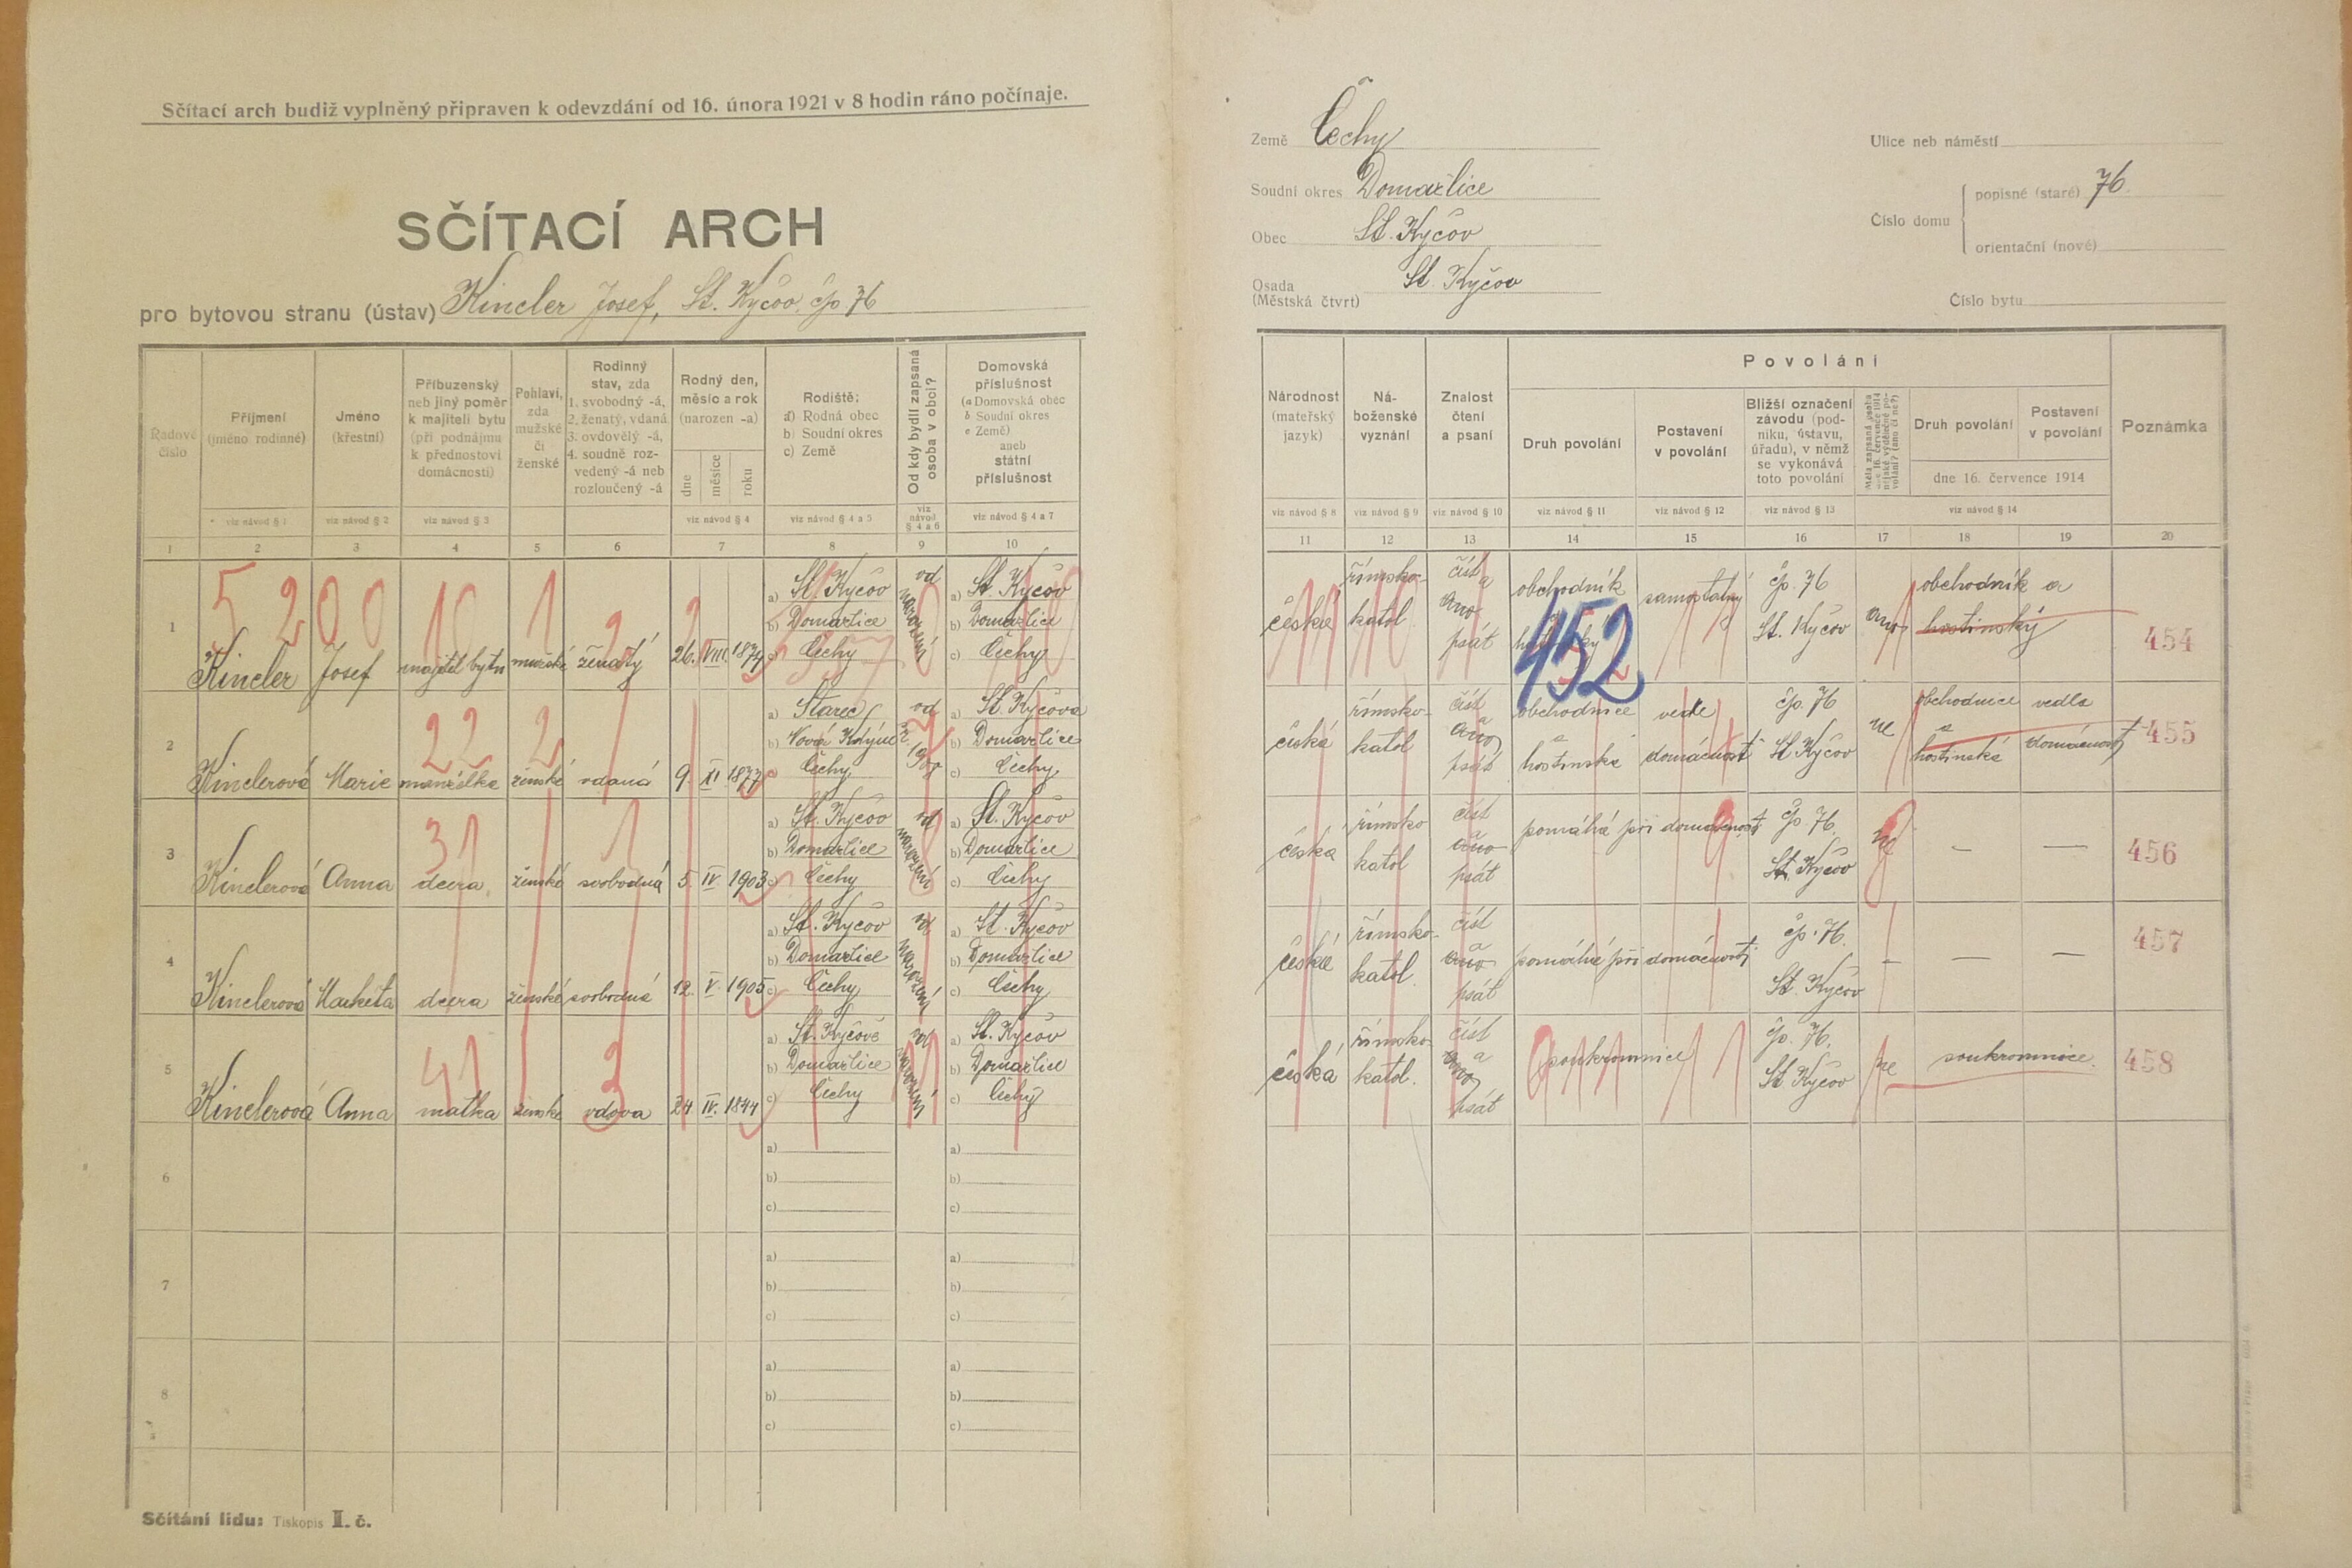 Sčítací arch budiž vyplněný připraven k odevzdání od 16. února 1921 v 8 hodin ráno počínaje.
SČÍTACÍ ARCH
pro bytovou stranu (ústav) Kincler Josef, St. Kyčov čp 76
Řadové číslo
Příjmení
(jméno rodinné)
Jméno
(křestní)
Příbuzenský
neb jiný poměr
k majiteli bytu
(při podnájmu
k přednostovi
domácnosti)
Pohlaví,
zda
mužské
či
ženské
Rodinný
stav, zda
1. svobodný -á,
2. ženatý, vdaná
3. ovdovělý -á,
4. soudně roz-
vedený -á neb
rozloučený -á
Rodný den,
měsíc a rok
(narozen -a)
dne
měsíce
roku
Rodiště:
a) Rodná obec
b) Soudní okres
c) Země
Od kdy bydlí zapsaná
osoba v obci?
Domovská
příslušnost
(a Domovská obec
b Soudní okres
c Země)
aneb
státní
příslušnost
viz návod § 1
viz návod § 2
viz návod § 3
viz návod § 4
viz návod § 4 a 5
viz návod § 4 a 6
viz návod § 4 a 7
1 2 3 4 5 6 7 8 9 10
5 2 0 0
1 Kincler Josef majitel bytu mužské ženatý 26. VIII. 1874
a) St. Kyčov
b) Domažlice
c) Čechy
od narození
a) St. Kyčov
b) Domažlice
c) Čechy
2 Kinclerová Marie manželka ženské vdaná 9. XI. 1877
a) Starec
b) Nová Kdýně
c) Čechy
od
a) St. Kyčova
b) Domažlice
c) Čechy
3 Kinclerová Anna dcera ženské svobodná 5. IV. 1903
a) St. Kyčov
b) Domažlice
c) Čechy
od narození
a) St. Kyčov
b) Domažlice
c) Čechy
4 Kinclerová Markéta dcera ženské svobodná 12. V. 1905
a) St. Kyčov
b) Domažlice
c) Čechy
od narození
a) St. Kyčov
b) Domažlice
c) Čechy
5 Kinclerová Anna matka ženské vdova 24. IV. 1844
a) St. Kyčově
b) Domažlice
c) Čechy
od narození
a) St. Kyčov
b) Domažlice
c) Čechy
6
a) a)
b) b)
c) c)
7
a) a)
b) b)
c) c)
8
a) a)
b) b)
c) c)
Sčítání lidu: Tiskopis II. č.
Země Čechy
Soudní okres Domažlice
Obec St. Kyčov
Osada
(Městská čtvrt) St. Kyčov
Ulice neb náměstí
Číslo domu
popisné (staré) 76.
orientační (nové)
Číslo bytu
Národnost
(mateřský
jazyk)
Ná-
boženské
vyznání
Znalost
čtení
a psaní
Povolání
Druh povolání
Postavení
v povolání
Bližší označení
závodu (pod-
niku, ústavu,
úřadu), v němž
se vykonává
toto povolání
Druh povolání
Postavení
v povolání
dne 16. července 1914
Poznámka
viz návod § 8
viz návod § 9
viz návod § 10
viz návod § 11
viz návod § 12
viz návod § 13
viz návod § 14
11 12 13 14 15 16 17 18 19 20
452
česká
římsko-
katol.
číst
a
ano
psát
obchodník
samostatný
čp. 76
St. Kyčov
ano
obchodník a
hostinský
454
česká
římsko-
katol
číst
a
ano
psát
obchodnice
a
hostinská
vedle
domácnosti
čp. 76
St Kyčov
ne
obchodnice vedle
a
hostinská domácnosti
455
česká
římsko
katol
číst
a
ano
psát
pomáhá při domácnosti
čp 76.
St. Kyčov
ne
— —
456
česká
římsko-
katol.
číst
a
ano
psát
pomáhá při domácnosti
čp. 76.
St. Kyčov
— — —
457
česká
římsko
katol.
číst
a
ano
psát
soukromnice
čp. 76.
St Kyčov
ne
soukromnice.
458